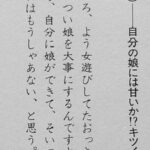 自分の娘には甘いか!? キツく
ろ、よう女遊びしてたおっ
つい娘を大事にするんです
、自分に娘ができて、そい
はもうしゃあない、と思う